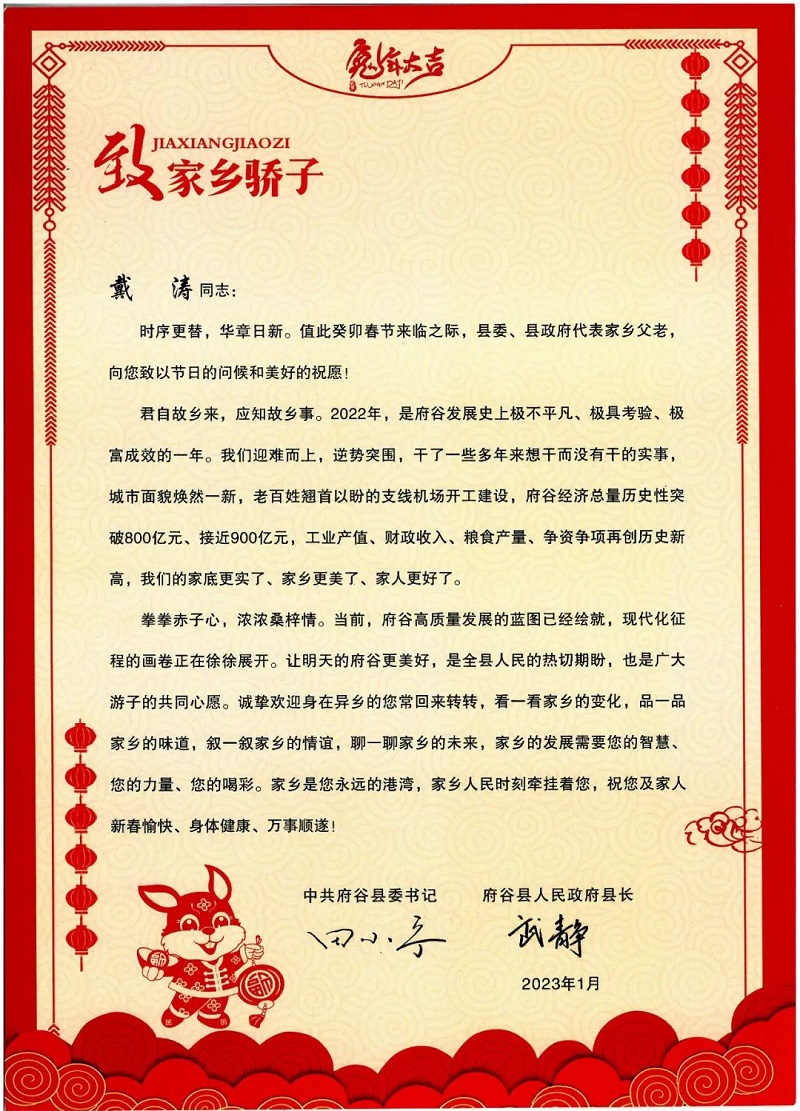 兔年大吉
TUNIAN DAJI
致
JIAXIANGJIAOZI
家乡骄子
戴 涛 同志：
时序更替，华章日新。值此癸卯春节来临之际，县委、县政府代表家乡父老，
向您致以节日的问候和美好的祝愿！
君自故乡来，应知故乡事。2022年，是府谷发展史上极不平凡、极具考验、极
富成效的一年。我们迎难而上，逆势突围，干了一些多年来想干而没有干的实事，
城市面貌焕然一新，老百姓翘首以盼的支线机场开工建设，府谷经济总量历史性突
破800亿元、接近900亿元，工业产值、财政收入、粮食产量、争资争项再创历史新
高，我们的家底更实了、家乡更美了、家人更好了。
拳拳赤子心，浓浓桑梓情。当前，府谷高质量发展的蓝图已经绘就，现代化征
程的画卷正在徐徐展开。让明天的府谷更美好，是全县人民的热切期盼，也是广大
游子的共同心愿。诚挚欢迎身在异乡的您常回来转转，看一看家乡的变化，品一品
家乡的味道，叙一叙家乡的情谊，聊一聊家乡的未来，家乡的发展需要您的智慧、
您的力量、您的喝彩。家乡是您永远的港湾，家乡人民时刻牵挂着您，祝您及家人
新春愉快、身体健康、万事顺遂！
中共府谷县委书记 府谷县人民政府县长
田小宁 武静
2023年1月